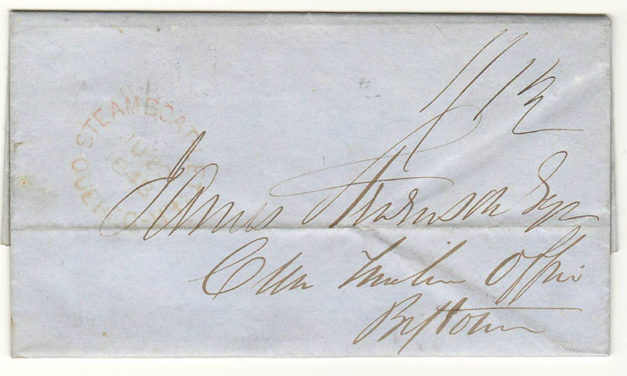 STEAMBOAT
QUEBEC
James Stevenson Esqr
Crown Timber Office
Bytown